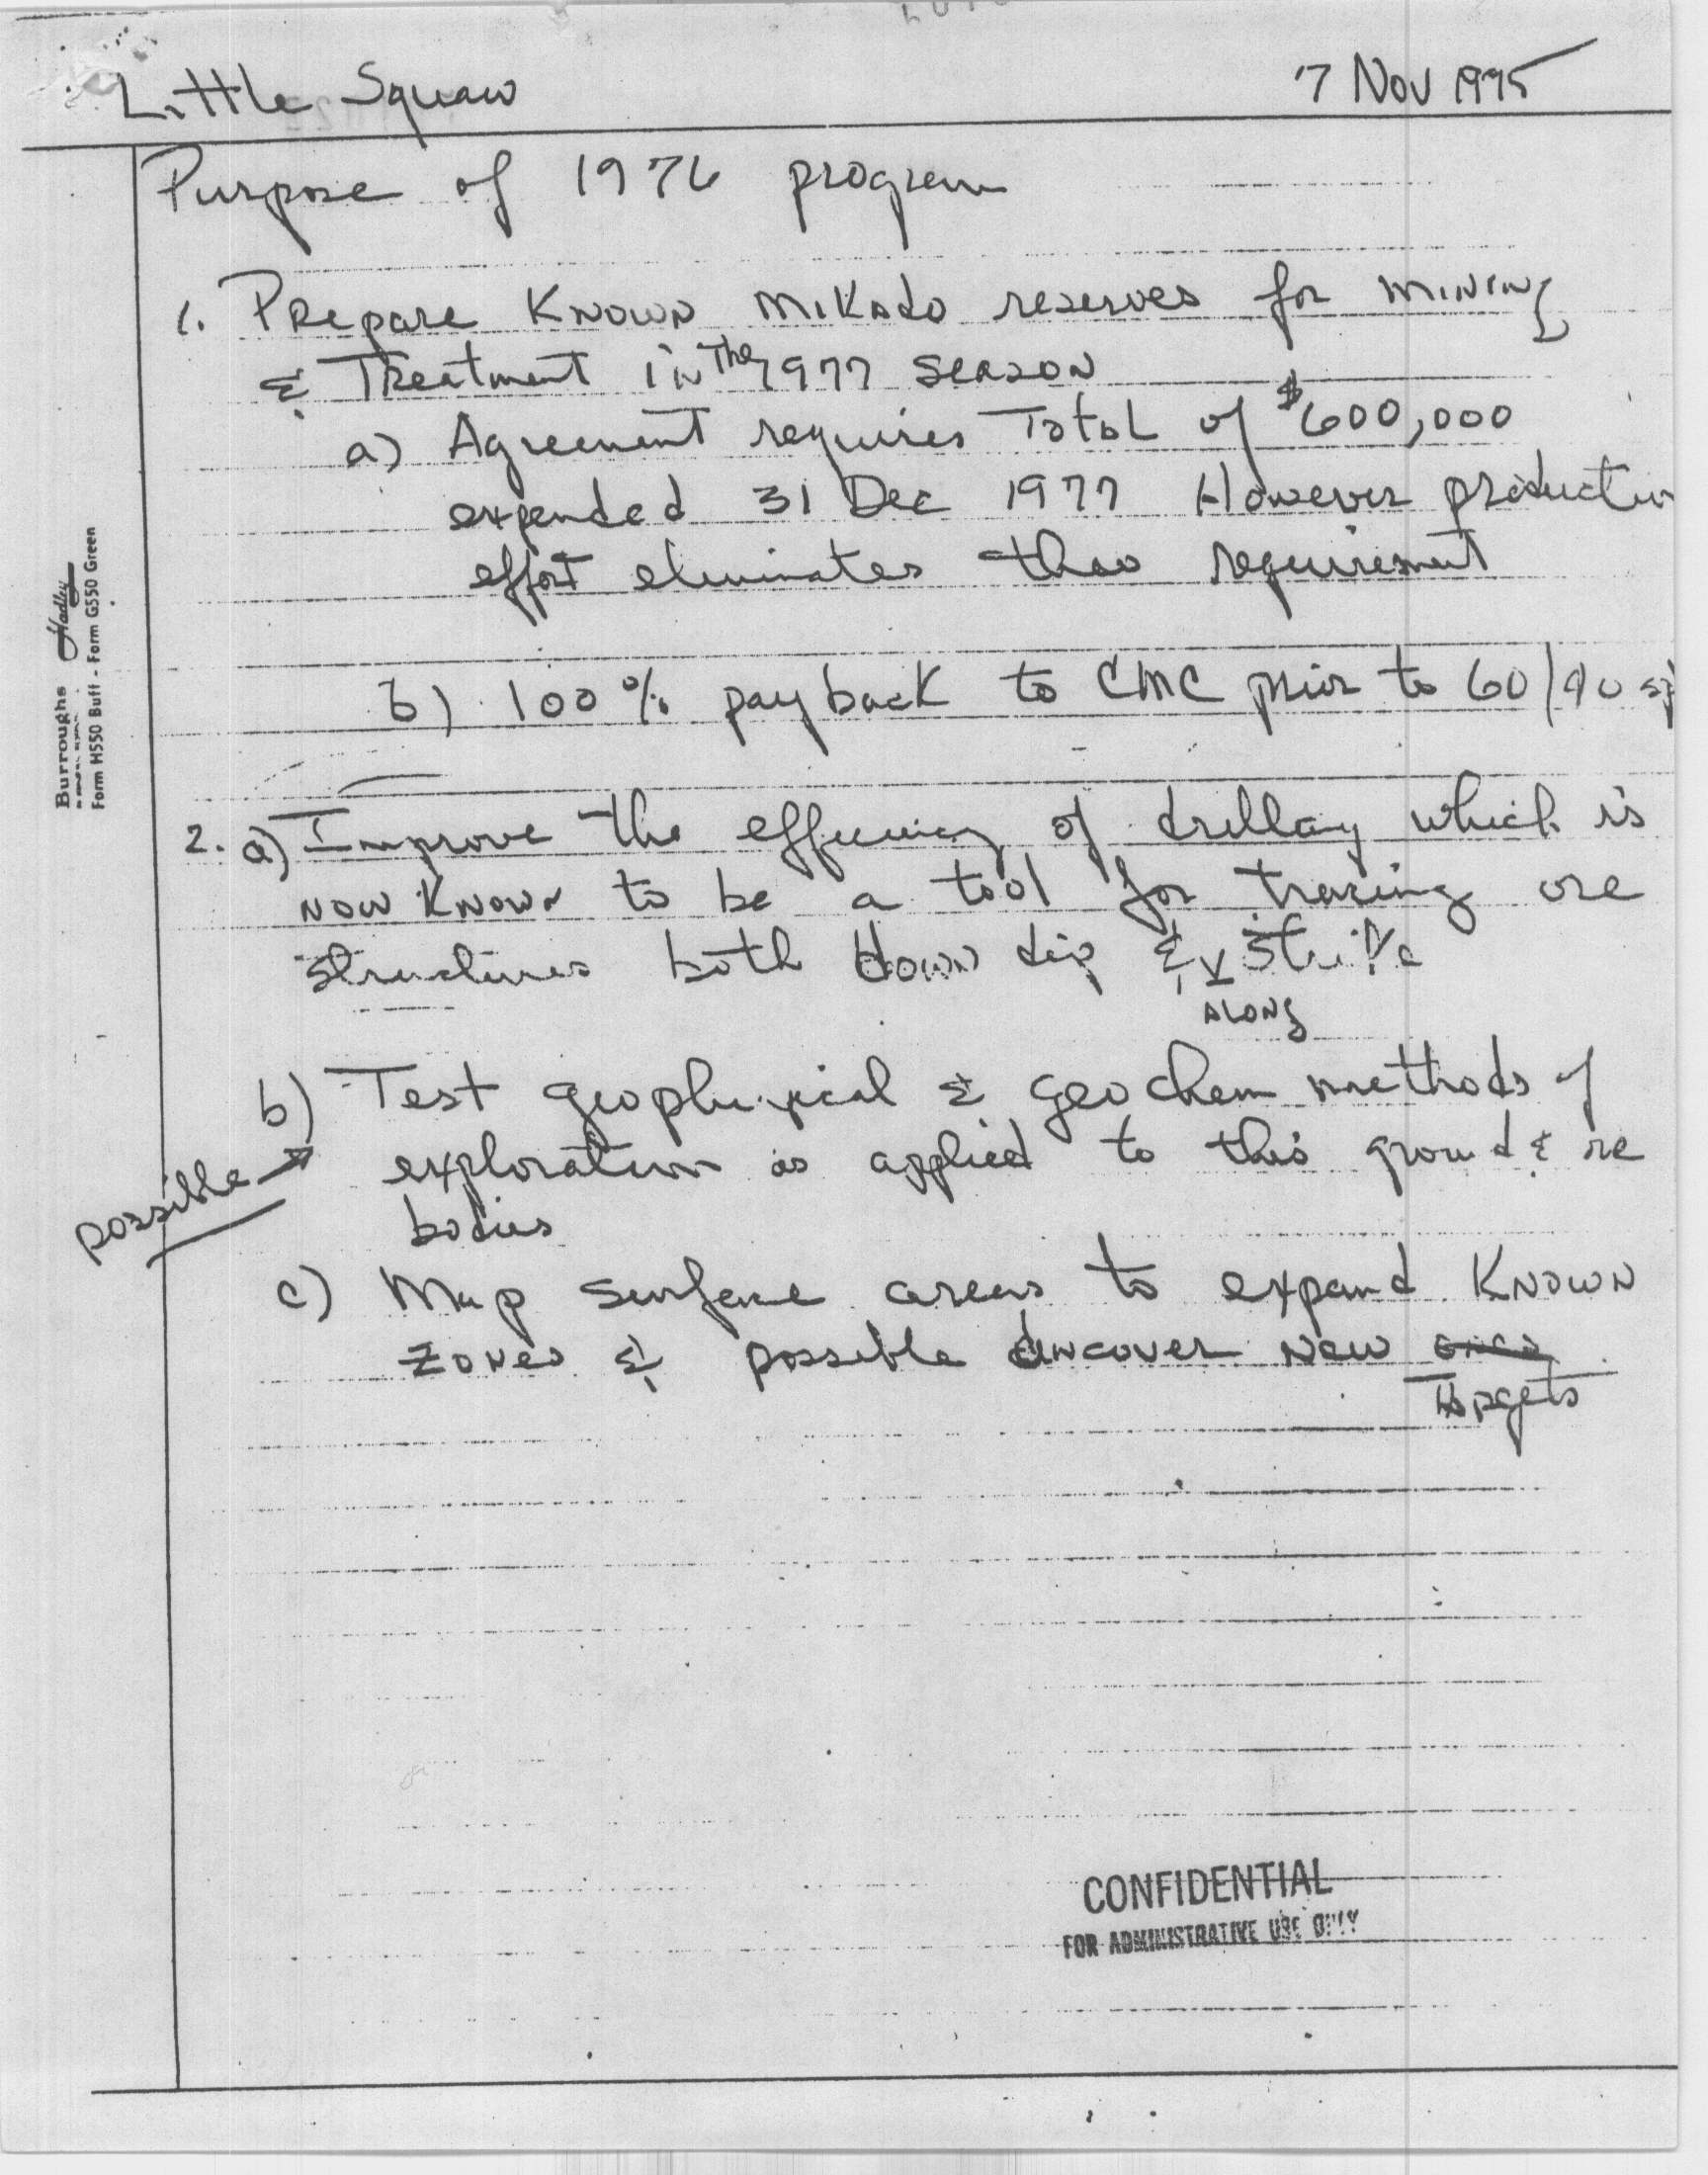 Little Squaw 7 Nov 1975
Purpose of 1976 program
1. Prepare Known Mikado reserves for mining
& Treatment in The 1977 season
a) Agreement requires Total of $600,000
expended 31 Dec 1977 However production
effort eliminates this requirement
b) 100% payback to CMC prior to 60/40
2. a) Improve the efficiency of drilling which is
now Known to be a tool for tracing ore
structures both down dip & along strike
b) Test geophysical & geochem methods of
possible → exploration as applied to this ground & ore
bodies
c) Map surface areas to expand Known
zones & possible uncover new
Targets
Burroughs Hadley
Form H550 Buff - Form G550 Green
CONFIDENTIAL
FOR ADMINISTRATIVE USE ONLY